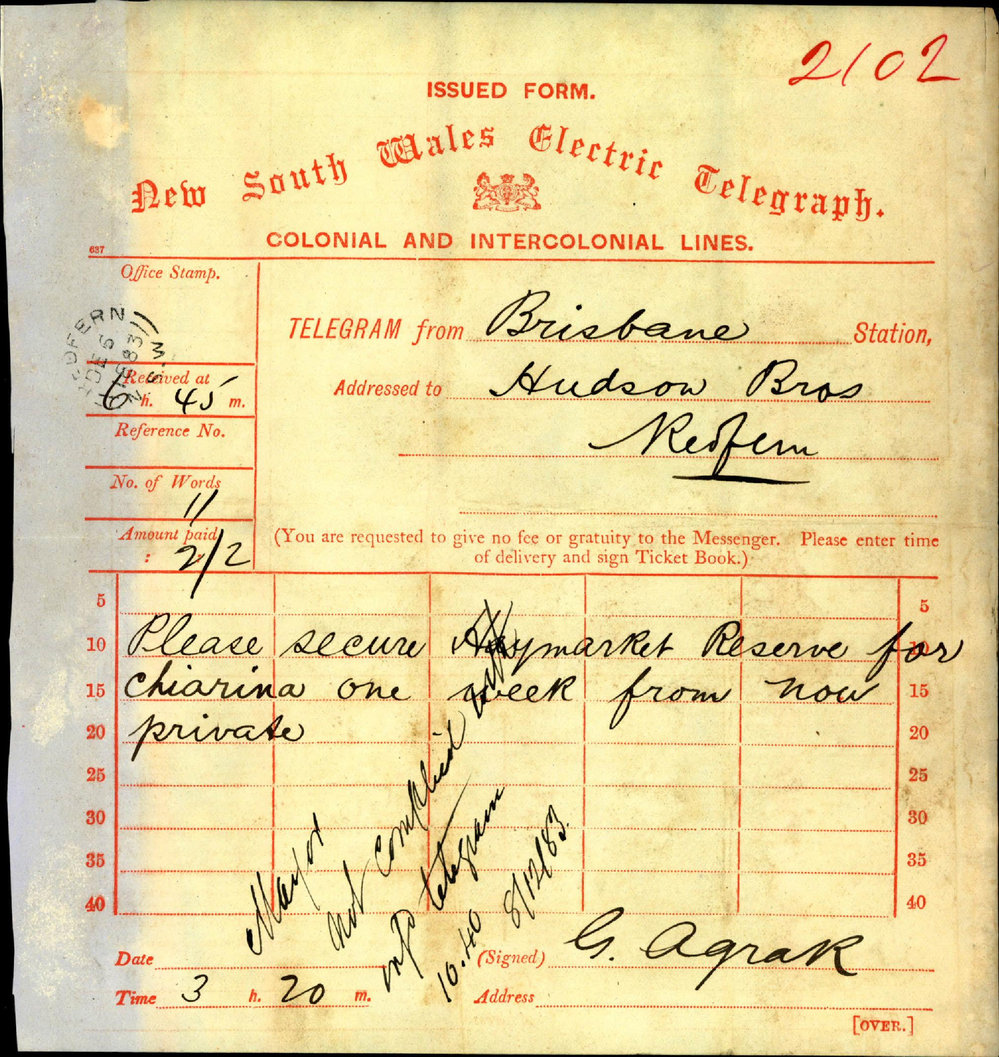 2102
ISSUED FORM.
New South Wales Electric Telegraph.
COLONIAL AND INTERCOLONIAL LINES.
637
Office Stamp.
REDFERN N.S.W
DE 5
1883
TELEGRAM from Brisbane Station,
Received at
6 h. 45 m.
Addressed to Hudson Bros
Redfern
Reference No.
No. of Words
11
Amount paid
: 2/2
(You are requested to give no fee or gratuity to the Messenger. Please enter time
of delivery and sign Ticket Book.)
5 5
10 Please secure Haymarket Reserve for 10
15 chiarina one week from now 15
20 private 20
25 25
30 30
35 35
40 40
Mayor
not complied with
telegram
10.40 8/12/83.
Date
(Signed) G. Agrak
Time 3 h. 20 m.
Address
[OVER.]